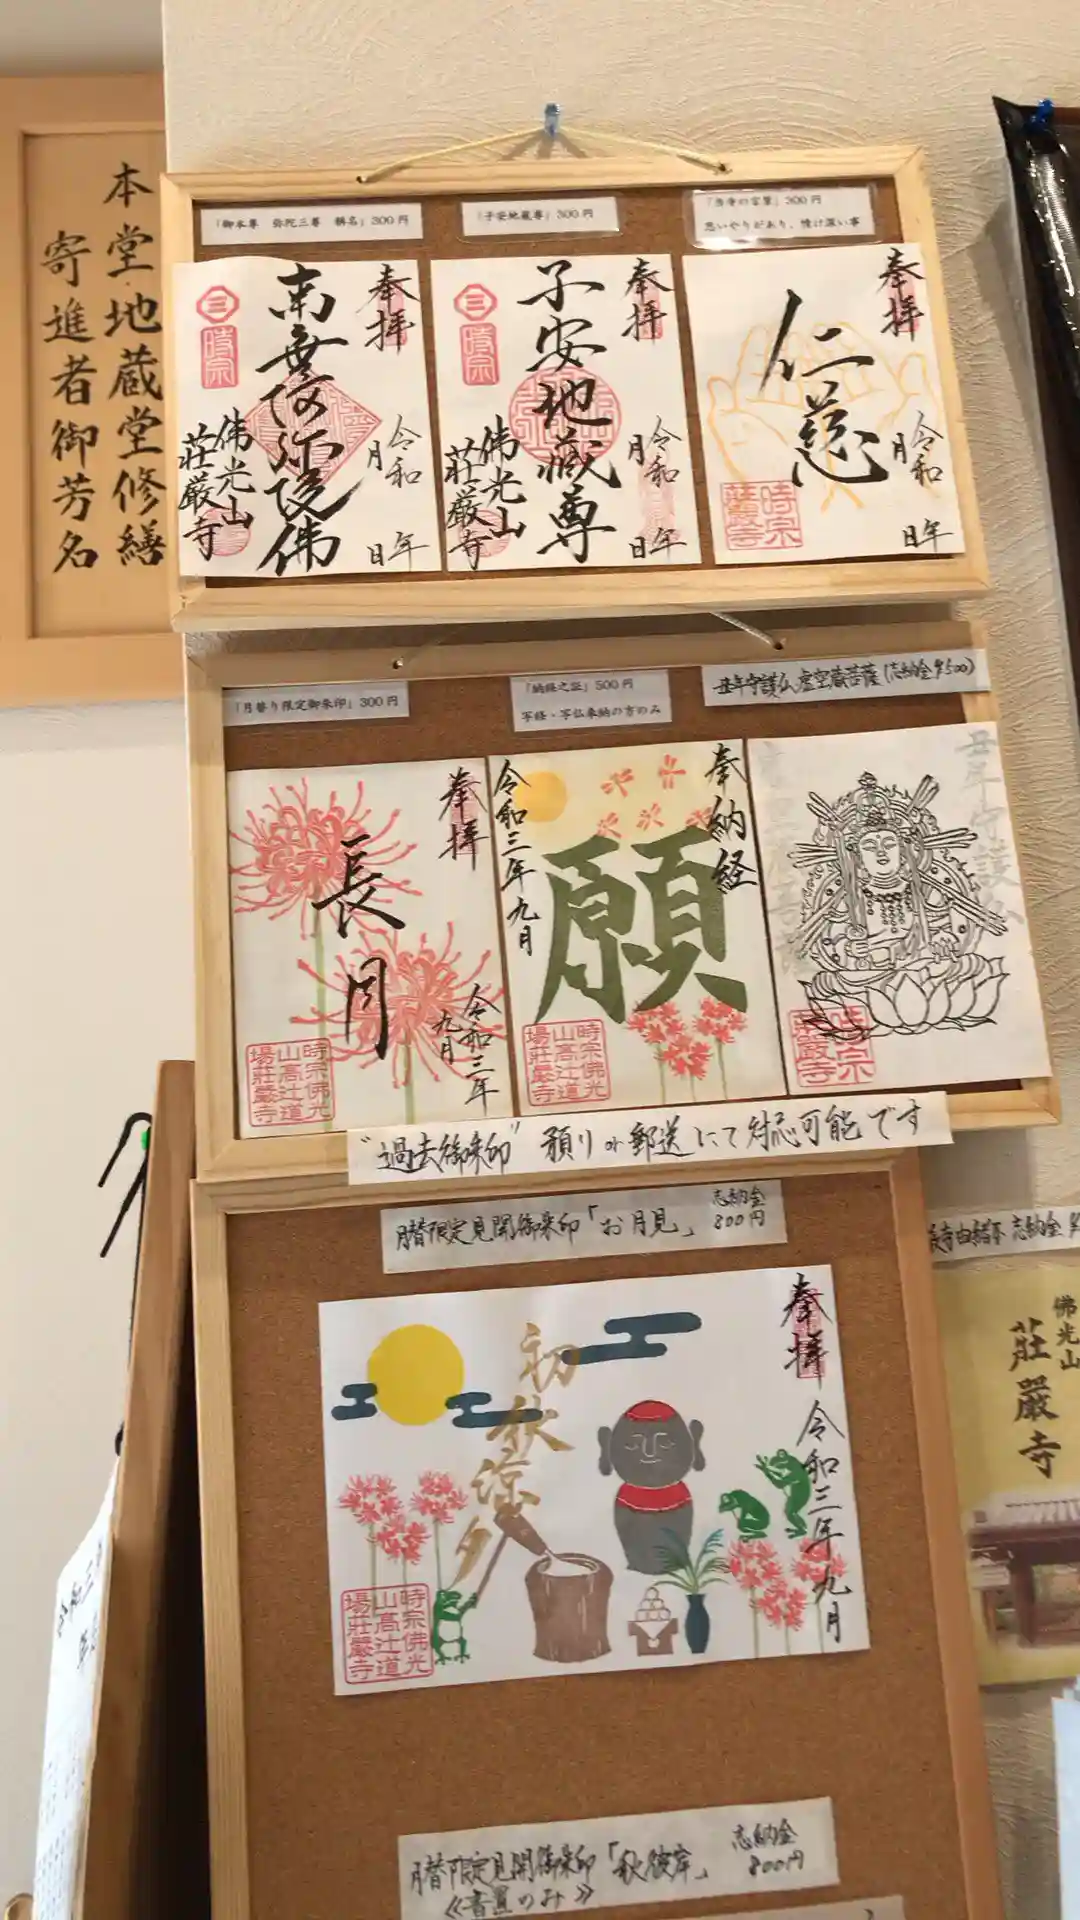 本堂・地蔵堂修繕
寄進者御芳名
「御本尊 弥陀三尊 稱名」300円
「子安地蔵尊」300円
「当寺の言葉」300円
思いやりがあり、情け深い事
奉拝
南無阿弥陀佛
令和 年
月 日
佛光山
荘厳寺
三
時宗
奉拝
子安地蔵尊
令和 年
月 日
佛光山
荘厳寺
三
時宗
奉拝
仁慈
令和 年
月 日
時宗
荘嚴寺
「月替り限定御朱印」300円
「納経之証」500円
写経・写仏奉納の方のみ
丑年守護仏 虚空蔵菩薩(志納金¥500)
奉拝
長月
令和三年
九月
時宗佛光
山高辻道
場荘嚴寺
奉納経
願
令和三年九月
時宗佛光
山高辻道
場荘嚴寺
丑年守護仏
時宗
荘嚴寺
"過去御朱印" 預り or 郵送にて対応可能です
月替限定見開御朱印「お月見」 志納金
800円
奉拝
令和三年九月
初秋涼夕
時宗佛光
山高辻道
場荘嚴寺
志納金
佛光山
荘嚴寺
月替限定見開御朱印「秋彼岸」 志納金
800円
≪書置のみ≫